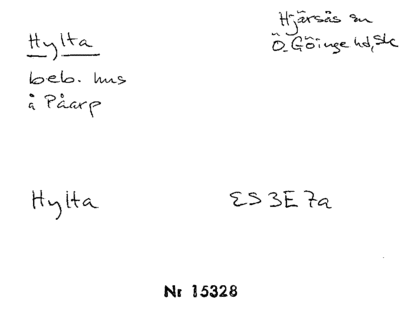 Hylta
Hjärsås sn
Ö. Göinge hd, Sk
beb. hus
å Påarp
Hylta
ES 3E 7a
Nr 15328